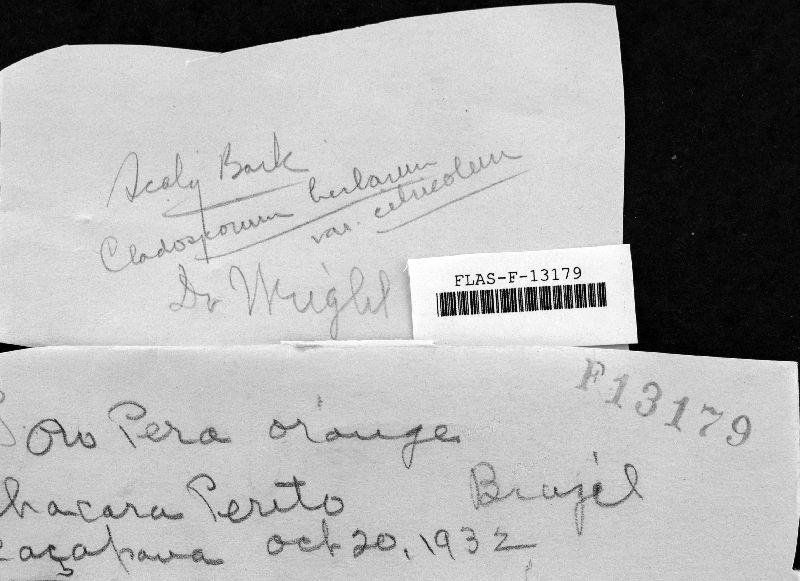 Scaly Bark
Cladosporium herbarum
var. citricolum
Dr Wright
FLAS-F-13179
F13179
Oro Pera orange
hacara Perito Brazil
caçapava oct 20, 1932